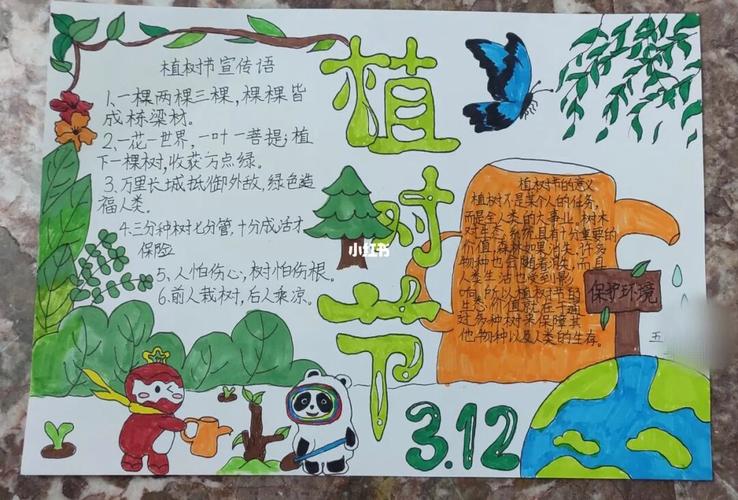 植树节宣传语
1、一棵两棵三棵,棵棵皆
成栋梁材。
2、一花一世界,一叶一菩提;植
下一棵树,收获万点绿。
3、万里长城抵御外敌,绿色造
福人类。
4、三分种树七分管,十分成活才
保险
5、人怕伤心,树怕伤根。
6、前人栽树,后人乘凉。
植树节
小红书
植树节的意义
植树不是某个人的任务,
而是全人类的大事业,树木
对生态系统具有十分重要的
价值,森林如果消失,许多
物种也会随着消失,而且
人类生活也受到影
响,所以植树节的
他物种以及人类的生存。
保护环境
五
3.12